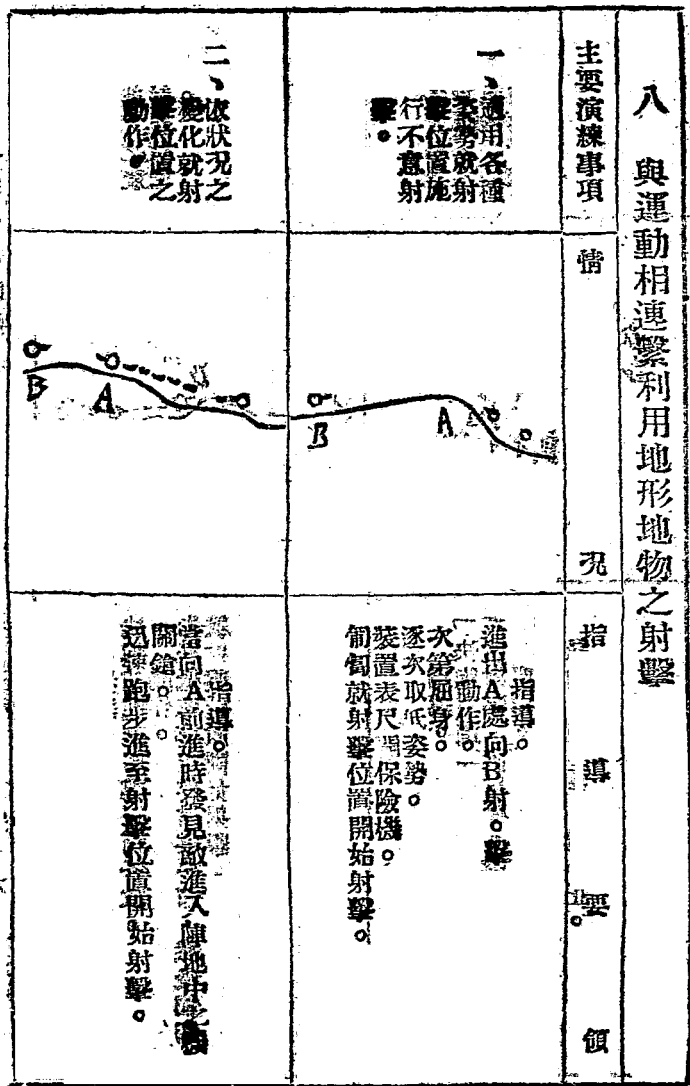 八　與運動相連繫利用地形地物之射擊
主要演練事項
情　况
指導要領
一、適用各種
姿勢就射
擊位置施
行不意射
擊。
A
B
指導。
進出A處向B射。擊
動作。
次第屈身。
逐次取低姿勢。
裝置表尺開保險機。
匍匐就射擊位置開始射擊。
二、依狀况之
變化就射
擊位置之
動作。
A
B
指導。
當向A前進時發見敵進入陣地中之
關鎗。
迅速跑步進至射擊位置開始射擊。